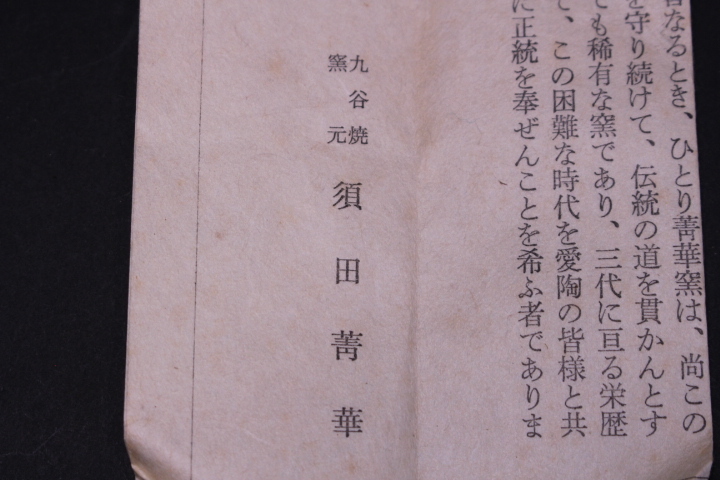 なるとき、ひとり菁華窯は、尚この
を守り続けて、伝統の道を貫かんとす
ても稀有な窯であり、三代に亘る栄歴
て、この困難な時代を愛陶の皆様と共
に正統を奉ぜんことを希ふ者でありま
九谷焼
窯元
須田菁華